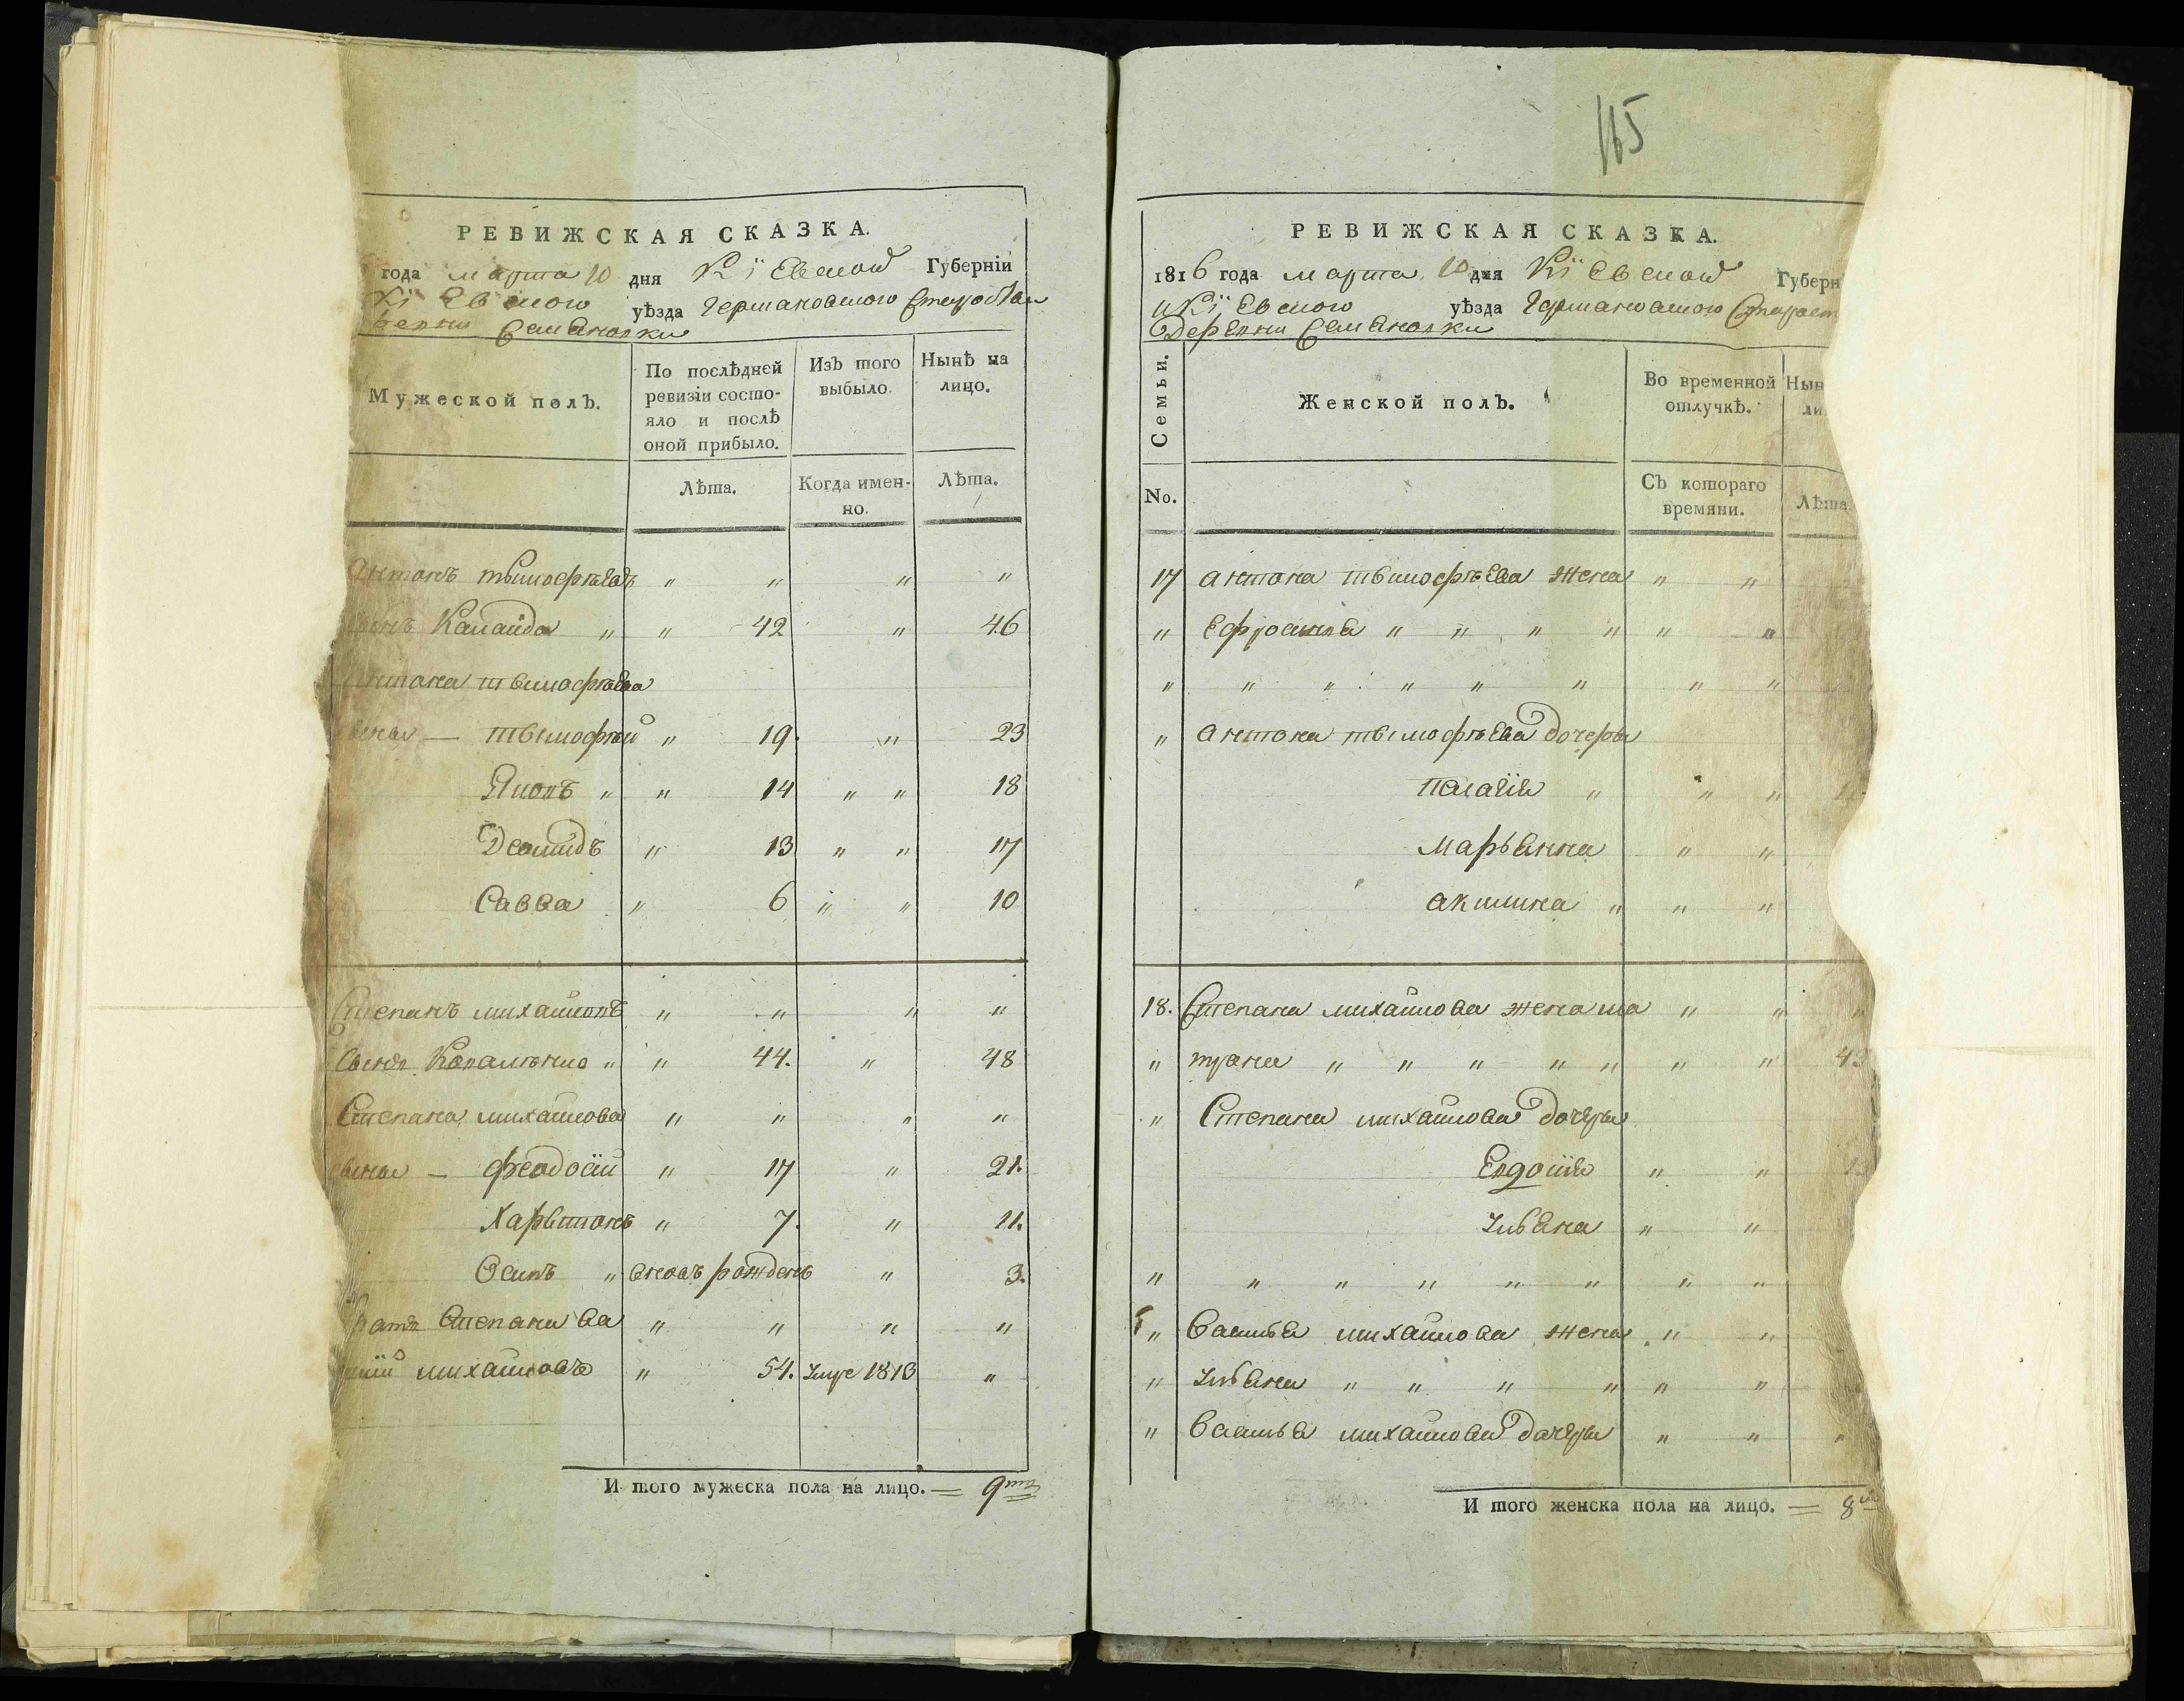 РЕВИЖСКАЯ СКАЗКА.
года марта 10 дня Кіевской Губерніи
Кіевского уѣзда Германовского Старостви
Семеновки
Мужеской полъ.
По послѣдней ревизіи состо-
яло и послѣ
оной прибыло.
Изъ того
выбыло.
Нынѣ на
лицо.
Лѣта.
Когда имен-
но.
Лѣта.
Антонъ тимофѣевъ " " " "
" " 42 " 46
Антона тимофѣева
тимофѣй " 19. " 23
" " 14 " " 18
Демидъ " 13 " " 17
Савва " 6 " " 10
Степанъ михайловъ " " " "
" " 44. " 48
Степана михайлова " " " "
сыны — феодосiй " 17 " 21.
Харитонъ " 7. " 11.
Осипъ " вновъ рожденъ " 3.
Степанова " " " "
михайловъ " 54. умре 1813 "
И того мужеска пола на лицо. = 9
165
РЕВИЖСКАЯ СКАЗКА.
1816 года марта 10 дня Кіевской Губерн
и Кіевского уѣзда Германовского Старост
Деревни Семеновки
Семьи.
Женской полъ.
Во временной
отлучкѣ.
Нын
ли
No.
Съ котораго
времяни.
Лѣта
17 антона тимофѣева жена " "
" Ефросинья " " " " " "
" " " " " " " "
" антона тимофѣева дочеры
" " "
марьянна " "
акилина " " "
18. Степана михайлова жена ма " " "
" трона " " " " " " " 43
" Степана михайлова дочеры
Евдокія " "
Ульяна " "
" " " " " " " "
" Василья михайлова жена " "
" Ульяна " " " " " "
" Василья михайлова дочеры " " "
И того женска пола на лицо. = 8